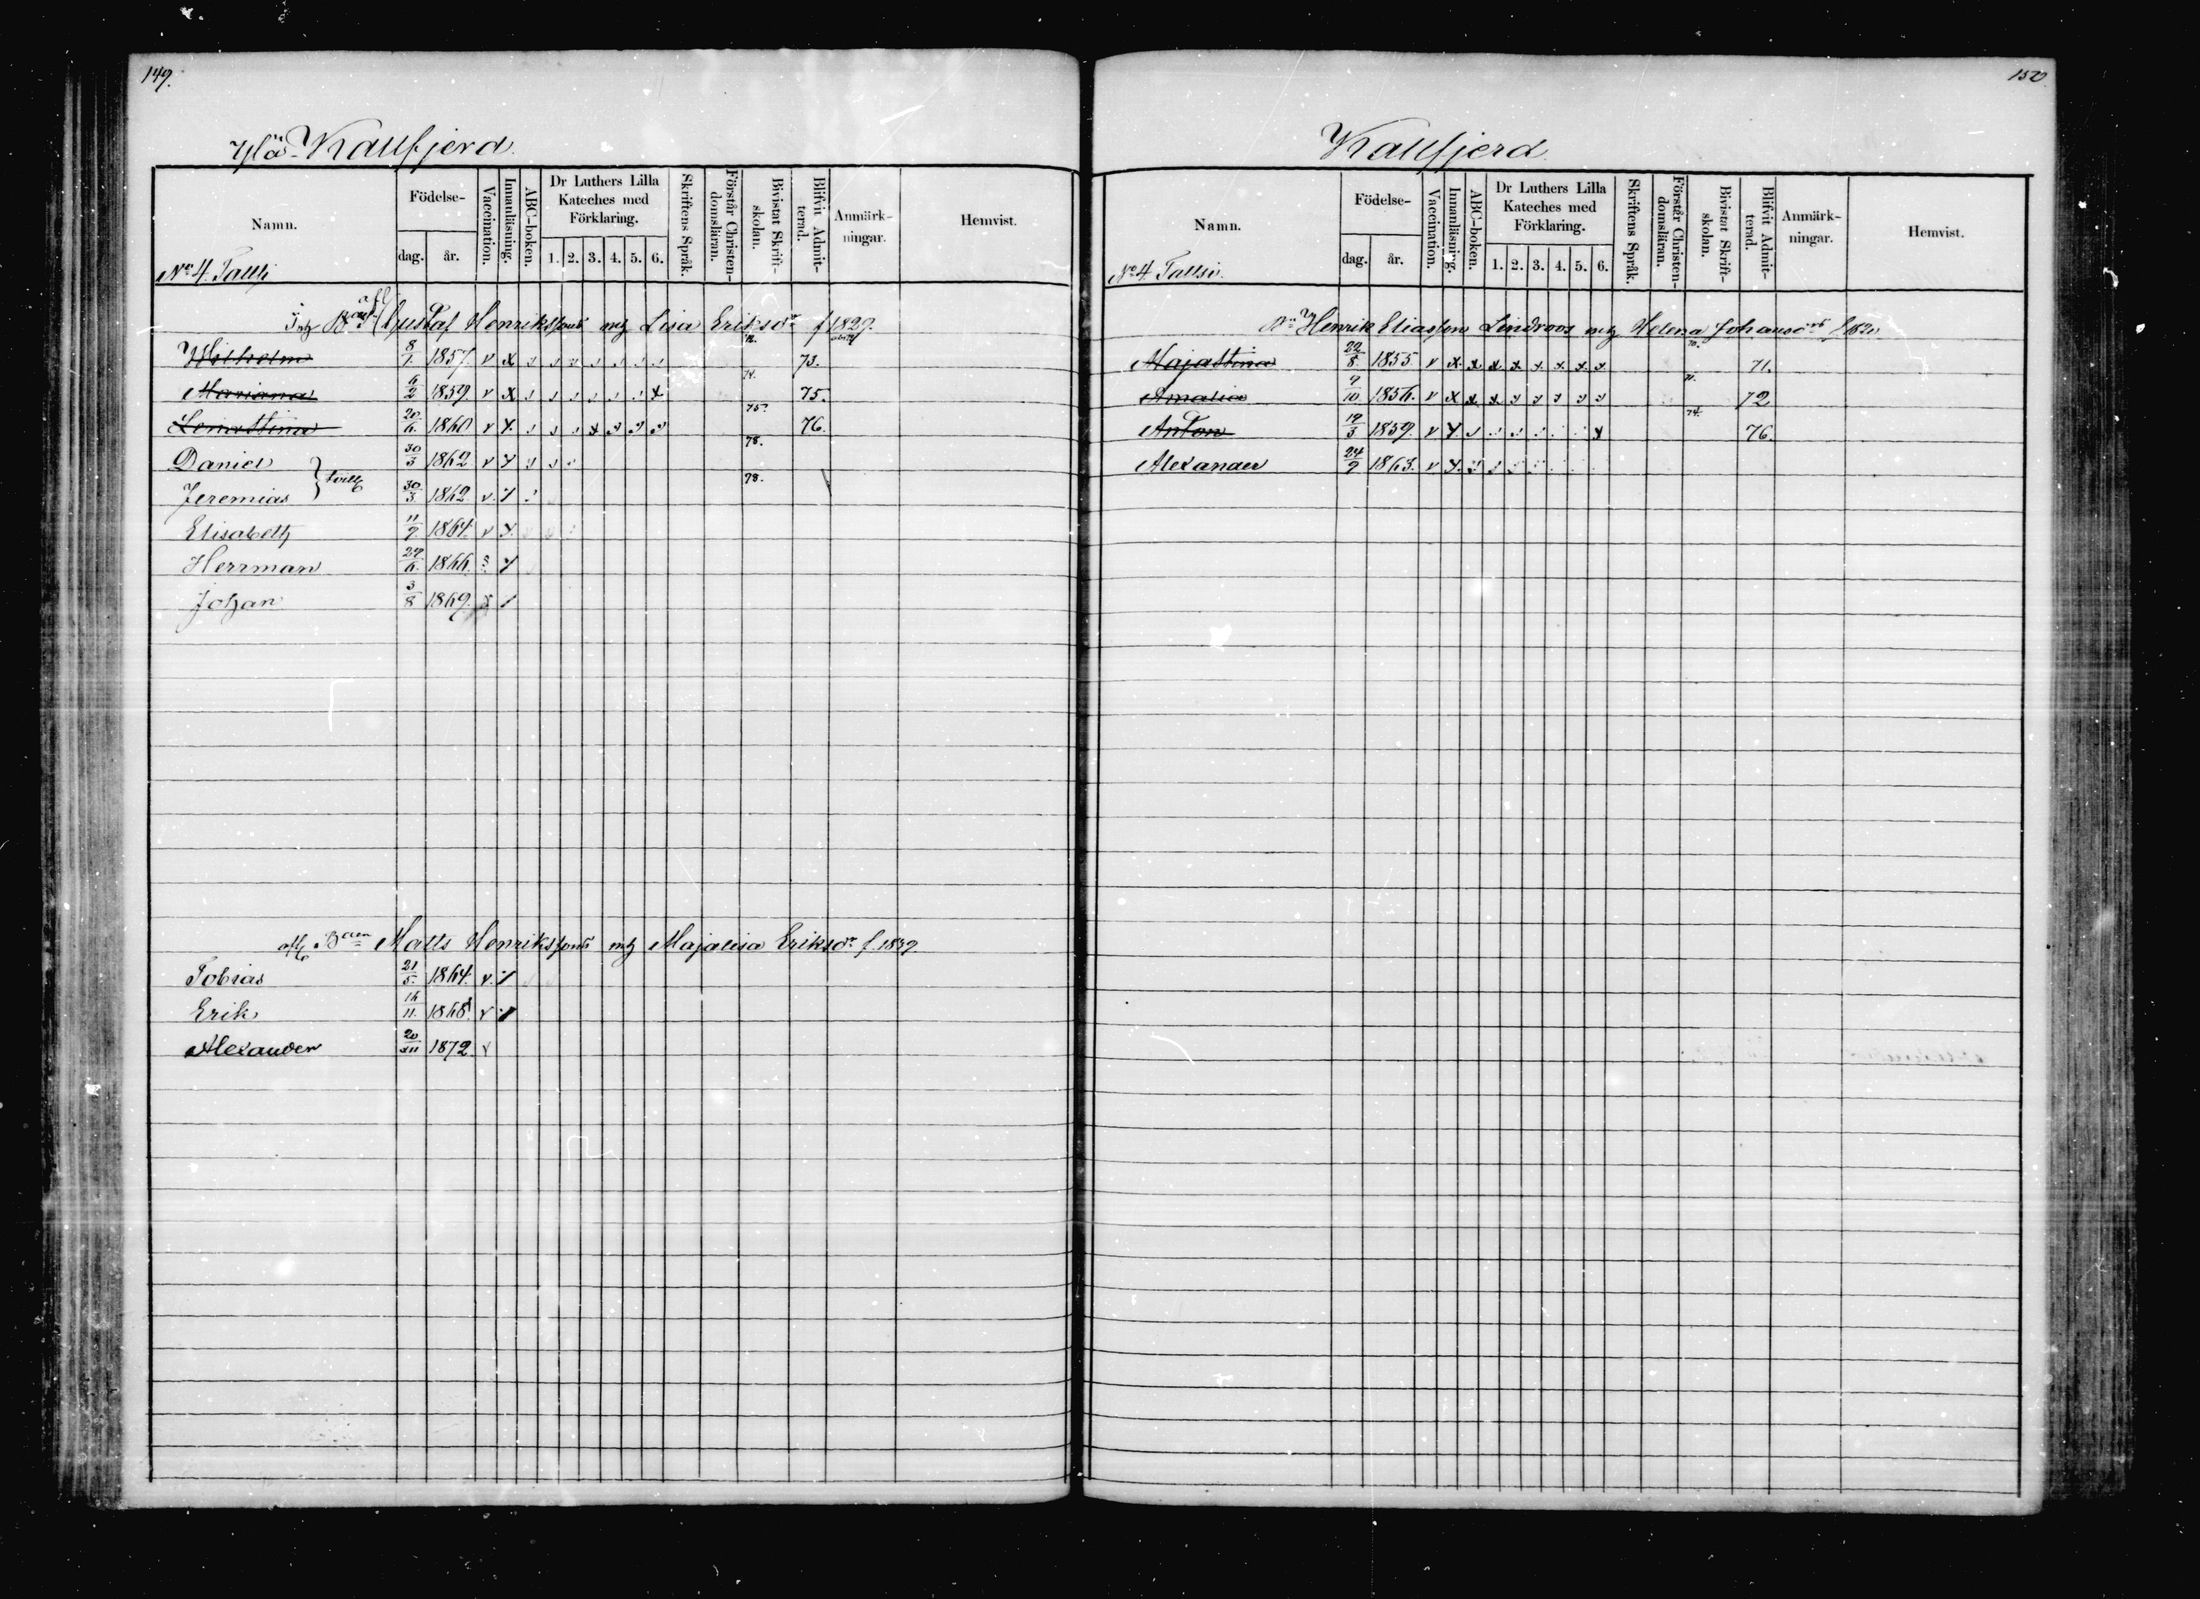 149.
Ylä Kaufjerd.
Namn. Födelse- dag. år. Vaccination. Innanläsning. ABC-boken. Dr Luthers Lilla Kateches med Förklaring. 1. 2. 3. 4. 5. 6. Skriftens Språk. Förstår Christendomsläran. Bivistat Skriftskolan. Blifvit Admitterad. Anmärkningar. Hemvist.
No 4 Talli
Gustaf Henrikssons Lisa Eriksdr f 1829.
Wilhelm 8/1 1857. v x 72. 73.
Mariana 6/2 1859 v x 74. 75.
Lenastina 20/6 1860 v x 75. 76.
Daniel 30/3 1862 v 78.
Jeremias 30/3 1862 v. 78.
Elisabeth 11/9 1864. v
Herrman 1866.
Johan 3/8 1869.
Matts Henrikssons Majalisa Eriksdr f. 1839
Tobias 21/5. 1864. v.
Erik 16/11. 1868. v
Alexander 20/XII 1872 v
150
Kaufjerd.
Namn. Födelse- dag. år. Vaccination. Innanläsning. ABC-boken. Dr Luthers Lilla Kateches med Förklaring. 1. 2. 3. 4. 5. 6. Skriftens Språk. Förstår Christendomsläran. Bivistat Skriftskolan. Blifvit Admitterad. Anmärkningar. Hemvist.
No 4 Tallsi.
Henrik Eliasson Lindroos Helena Johansdr
Majastina 22/8 1855 v x x x x x x x x 70. 71.
Amalia 9/10 1856. v x x x 71. 72
Anton 19/3 1859. v 74. 76
Alexander 24/9 1863. v